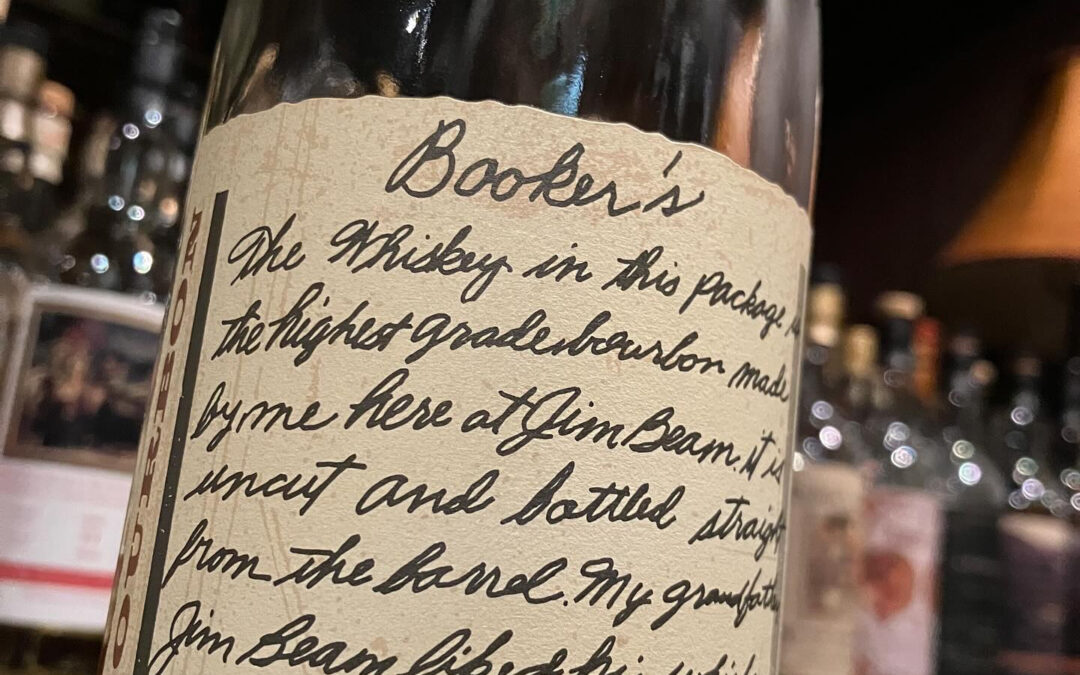 Booker's
The Whiskey in this package is
the highest grade bourbon made
by me here at Jim Beam. it is
uncut and bottled straight
from the barrel. My grandfather
Jim Beam liked his